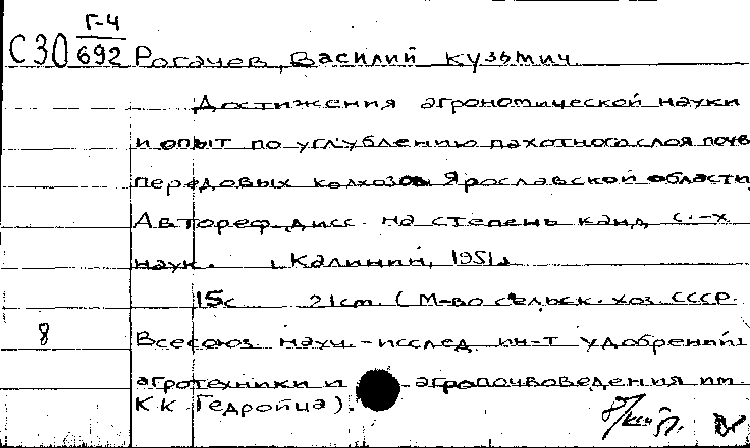 Г-4
С30 692 Рогачев, Василий Кузьмич.
Достижения агрономической науки
и опыт по углублению пахотного слоя почв
передовых колхозов Ярославской области
Автореф. дисс. на степень канд. с.-х
наук. Калинин, 1951.
15с 21см. (М-во сельск. хоз. СССР.
8 Всесоюз. науч.-исслед. ин-т удобрений
агротехники и агропочвоведения им.
К К Гедройца).